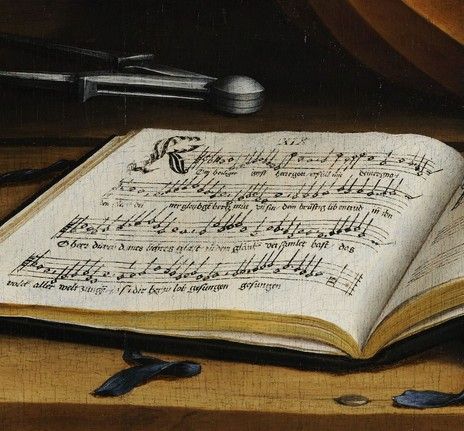 XIX
Kom heiliger geyst herregott erfüll mit deinergnad
hertz mut un sin dein brustig lib entzund in ihn
O herr durch deines lichtes glast zu dem glaube versamlet hast das
volck aller welt zunge dir herr zu lob gesungen gesungen